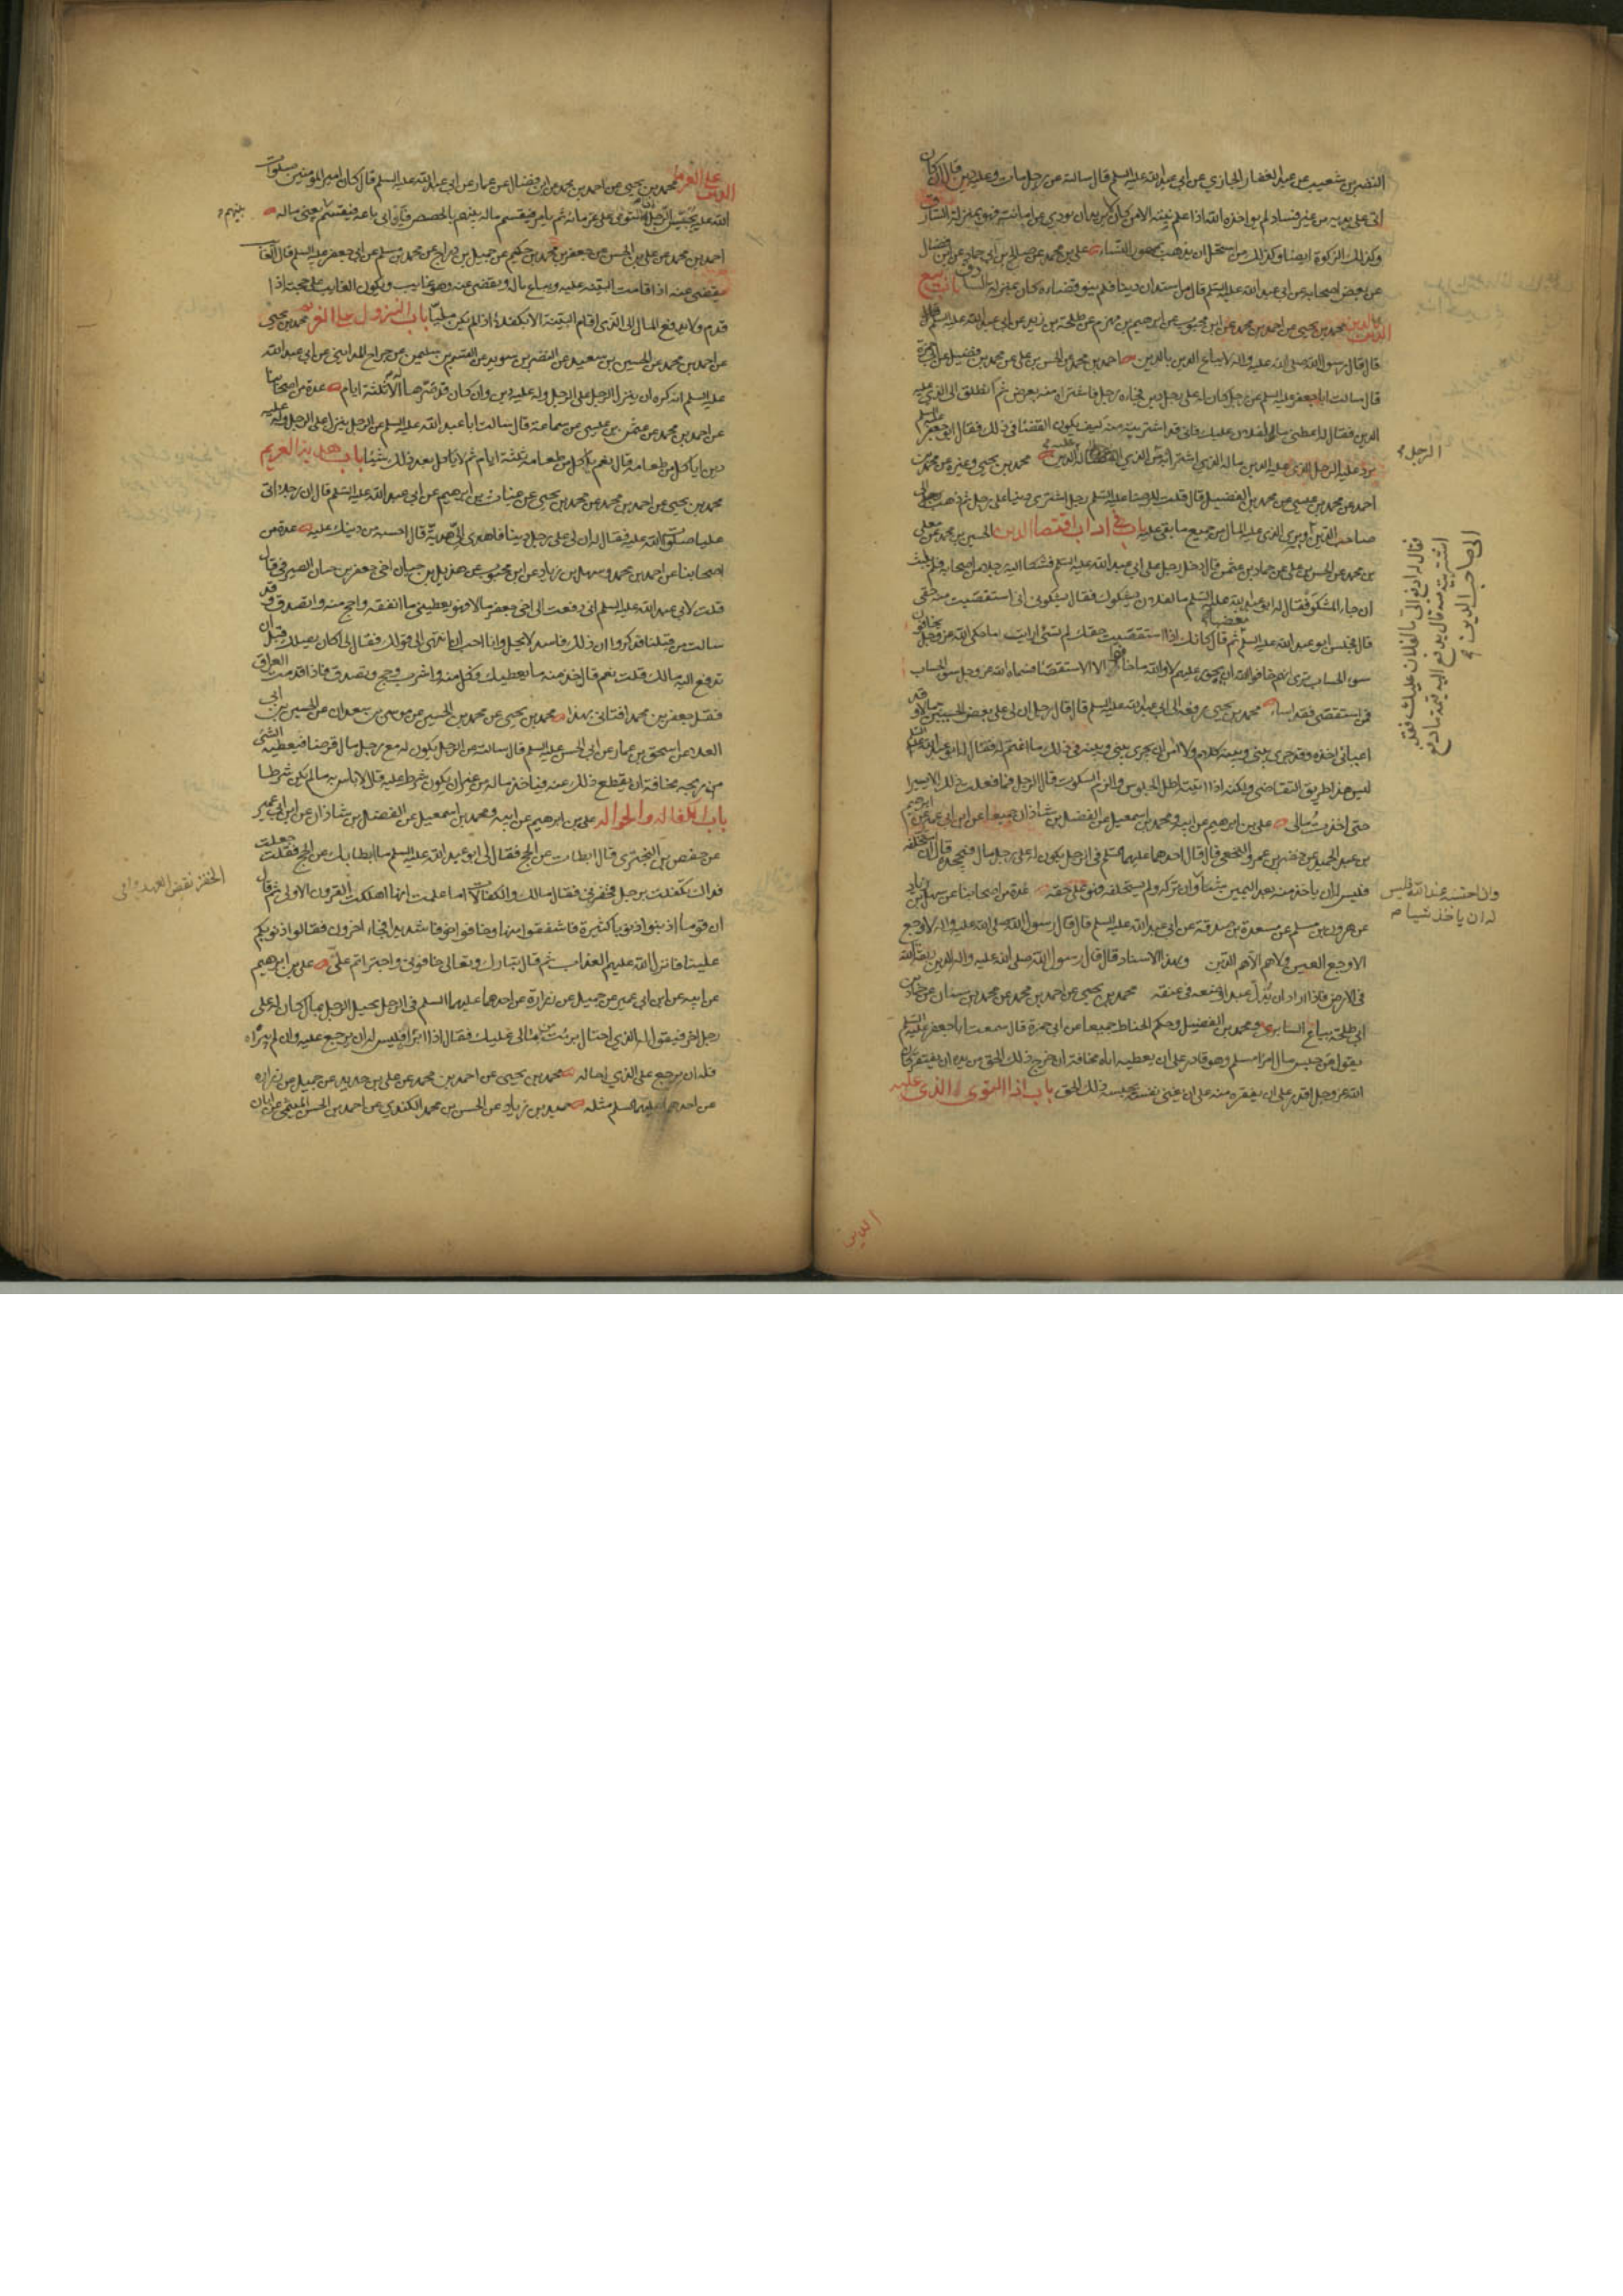 النضر بن شعيب عن عبد الغفار الجازي عن ابي عبد الله عليه السلم قال سالته عن رجل مات وعليه دين قال ان كان
اتى على يديه من غير فساد لم يواخذه الله اذا علم نيته الا من كان لا يريد ان يودي عن امانته فهو بمنزلة السارق
وكذلك الزكوة ايضا وكذلك من استحل ان يذهب بمهور النساء علي بن محمد عن صالح بن ابي حماد عن ابن فضال
عن بعض اصحابه عن ابي عبد الله عليه السلم قال من استدان دينا فلم ينو قضاءه كان بمنزلة السارق باب بيع
الدين بالدين محمد بن يحيى عن احمد بن محمد عن ابن محبوب عن ابرهيم بن مهزم عن طلحة بن زيد عن ابي عبد الله عليه السلم
قال قال رسول الله صلى الله عليه واله لا يباع الدين بالدين احمد بن محمد عن الحسن بن علي عن محمد بن فضيل عن ابي حمزة
قال سالت ابا جعفر عليه السلم عن رجل كان له على رجل دين فجاءه رجل فاشترى منه بعرض ثم انطلق الى الذي عليه
الدين فقال له اعطني ما لفلان عليك فاني قد اشتريته منه كيف يكون القضا في ذلك فقال ابو جعفر عليه السلم
يرد عليه الرجل الذي عليه الدين ماله الذي اشتراه به من الذي له الدين محمد بن يحيى وغيره عن محمد بن
احمد عن محمد بن عيسى عن محمد بن الفضيل قال قلت للرضا عليه السلم رجل اشترى دينا على رجل ثم ذهب الى
صاحب الدين وبرئ الذي عليه المال من جميع ما بقي عليه باب في اداب اقتضا الدين الحسين بن محمد عن معلى
بن محمد عن الحسن بن علي عن حماد بن عثمن قال دخل رجل على ابي عبد الله عليه السلم فشكا اليه رجلا من اصحابه فلم يلبث
ان جاء المشكو فقال له ابو عبد الله عليه السلم ما لفلان يشكوك فقال يشكوني اني استقضيت منه حقي
قال فجلس ابو عبد الله عليه السلم مغضبا ثم قال كانك اذا استقضيت حقك لم تسئ ارايت ما حكى الله عز وجل يخافون
سوء الحساب ترى انهم خافوا الله ان يجور عليهم لا والله ما خافوا الا الاستقضا فسماه الله عز وجل سوء الحساب
فمن استقضى فقد اساء محمد بن يحيى رفعه الى ابي عبد الله عليه السلم قال قال رجل ان لي على بعض الحسنيين مالا وقد
اعياني اخذه وقد جرى بيني وبينه كلام ولا امن ان يجري بيني وبينه في ذلك ما اغتم له فقال له ابو عبد الله عليه السلم
ليس هذا طريق التقاضي ولكن اذا اتيته اطل الجلوس والزم السكوت قال الرجل فما فعلت ذلك الا يسيرا
حتى اخذت مالي علي بن ابرهيم عن ابيه ومحمد بن اسمعيل عن الفضل بن شاذان جميعا عن ابن ابي عمير عن ابرهيم
بن عبد الحميد عن خضر بن عمرو النخعي قال قال احدهما عليهما السلم في الرجل يكون له على رجل مال فيجحده قال ان استحلفه
فليس له ان ياخذ منه بعد اليمين شيئا وان تركه ولم يستحلفه فهو على حقه عدة من اصحابنا عن سهل بن زياد
عن هرون بن مسلم عن مسعدة بن صدقة عن ابي عبد الله عليه السلم قال قال رسول الله صلى الله عليه واله لا وجع
الا وجع العين ولا هم الا هم الدين وبهذا الاسناد قال قال رسول الله صلى الله عليه واله الدين ربقة الله
في الارض فاذا اراد ان يذل عبدا وضعه في عنقه محمد بن يحيى عن احمد بن محمد عن محمد بن سنان عن حماد بن
ابي طلحة بياع السابري ومحمد بن الفضيل وحكم الحناط جميعا عن ابي حمزة قال سمعت ابا جعفر عليه السلم
يقول من حبس مال امرئ مسلم وهو قادر على ان يعطيه اياه مخافة ان خرج ذلك الحق من يده ان يفتقر كان
الله عز وجل اقدر على ان يفقره منه على ان يغني نفسه بحبسه ذلك الحق باب اذا التوى الذي عليه
الرجل
فقال له ادفع الي ما لفلان عليك فقد
اشتريته منه قال يدفع اليه قيمة ما دفع
الى صاحب الدين
وان احتسبه عند الله فليس
له ان ياخذ شيا
الدين
الدين على الغرما محمد بن يحيى عن احمد بن محمد عن ابن فضال عن عمار عن ابي عبد الله عليه السلم قال كان امير المومنين صلوات
الله عليه يحبس الرجل اذا التوى على غرمائه ثم يامر فيقسم ماله بينهم بالحصص فان ابى باعه فيقسم يعني ماله
بينهم
احمد بن محمد عن علي بن الحسن عن جعفر بن محمد بن حكيم عن جميل بن دراج عن محمد بن مسلم عن ابي جعفر عليه السلم قال الغائب
يقضى عنه اذا قامت البينة عليه ويباع ماله ويقضى عنه وهو غايب ويكون الغايب على حجته اذا
قدم ولا يدفع المال الى الذي اقام البينة الا بكفلاء اذا لم يكن مليا باب النزول على الغريم محمد بن يحيى
عن احمد بن محمد عن الحسين بن سعيد عن النضر بن سويد عن القسم بن سليمن عن جراح المدايني عن ابي عبد الله
عليه السلم انه كره ان ينزل الرجل على الرجل وله عليه دين وان كان قد صرها له الا ثلثة ايام عدة من اصحابنا
عن احمد بن محمد عن عثمن بن عيسى عن سماعة قال سالت ابا عبد الله عليه السلم عن الرجل ينزل على الرجل وله عليه
دين اياكل من طعامه قال نعم ياكل من طعامه ثلثة ايام ثم لا ياكل بعد ذلك شيئا باب هدية الغريم
محمد بن يحيى عن احمد بن محمد عن محمد بن يحيى عن غياث بن ابرهيم عن ابي عبد الله عليه السلم قال ان رجلا اتى
عليا صلوات الله عليه فقال له ان لي على رجل دينا فاهدى الي هدية قال احسبه من دينك عليه عدة من
اصحابنا عن احمد بن محمد وسهل بن زياد عن ابن محبوب عن هذيل بن حيان اخي جعفر بن حيان الصيرفي قال
قلت لابي عبد الله عليه السلم اني دفعت الى اخي جعفر مالا فهو يعطيني ما انفقه واحج منه واتصدق وقد
سالت من قبلنا فذكروا ان ذلك فاسد لا يحل وانا احب ان انتهي الى قولك فقال لي اكان يصلك قبل ان
تدفع اليه مالك قلت نعم قال خذ منه ما يعطيك فكل منه واشرب وحج وتصدق فاذا قدمت العراق
فقل جعفر بن محمد افتاني بهذا محمد بن يحيى عن محمد بن الحسين عن موسى بن سعدان عن الحسين بن ابي
العلاء عن اسحق بن عمار عن ابي الحسن عليه السلم قال سالته عن الرجل يكون له مع رجل مال قرضا فيعطيه الشئ
من ربحه مخافة ان يقطع ذلك عنه فياخذ ماله من غير ان يكون شرط عليه قال لا باس به ما لم يكن شرطا
باب الكفالة والحواله علي بن ابرهيم عن ابيه ومحمد بن اسمعيل عن الفضل بن شاذان عن ابن ابي عمير
عن حفص بن البختري قال ابطات عن الحج فقال لي ابو عبد الله عليه السلم ما ابطا بك عن الحج فقلت جعلت
فداك تكفلت برجل فخفر بي فقال مالك والكفالات اما علمت انها اهلكت القرون الاولى ثم قال
ان قوما اذنبوا ذنوبا كثيرة فاشفقوا منها وخافوا خوفا شديدا فجاء اخرون فقالوا ذنوبكم
علينا فانزل الله عليهم العذاب ثم قال تبارك وتعالى خافوني واجتراتم علي علي بن ابرهيم
عن ابيه عن ابن ابي عمير عن جميل عن زرارة عن احدهما عليهما السلم في الرجل يحيل الرجل بمال كان له على
رجل اخر فيقول له الذي احتال برئت من مالي عليك فقال اذا ابراه فليس له ان يرجع عليه وان لم يبراه
فله ان يرجع على الذي احاله محمد بن يحيى عن احمد بن محمد عن علي بن حديد عن جميل عن زراره
عن احدهما عليهما السلم مثله حميد بن زياد عن الحسن بن محمد الكندي عن احمد بن الحسن الميثمي عن ابان
الخفر نقض العهد وافي